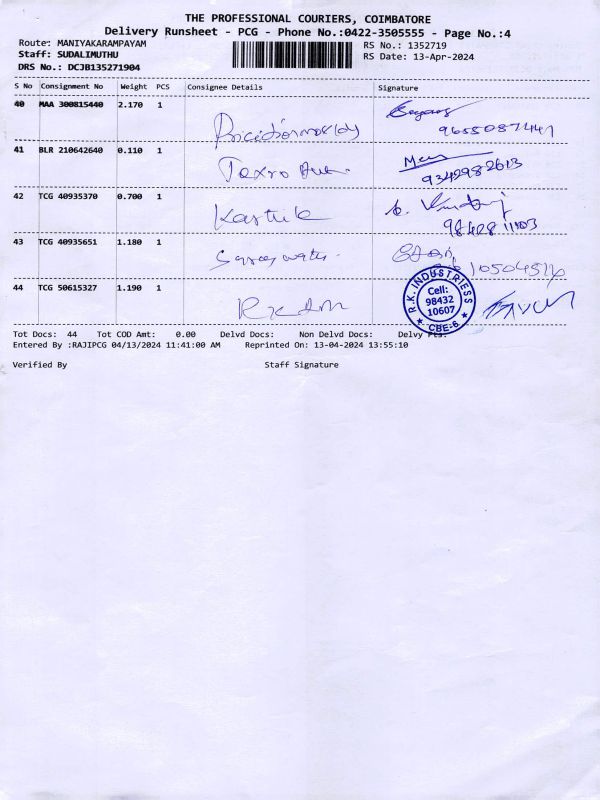 THE PROFESSIONAL COURIERS, COIMBATORE
Delivery Runsheet - PCG - Phone No.:0422-3505555 - Page No.:4
Route: MANIYAKARAMPAYAM
Staff: SUDALIMUTHU
DRS No.: DCJB135271904
RS No.: 1352719
RS Date: 13-Apr-2024
S No Consignment No Weight PCS Consignee Details Signature
40 MAA 300815440 2.170 1
41 BLR 210642640 0.110 1
9342982613
42 TCG 40935370 0.700 1 Karthik
43 TCG 40935651 1.180 1
44 TCG 50615327 1.190 1
R.K. INDUSTRIESS
Cell:
98432
10607
★ CBE-6 ★
Tot Docs: 44 Tot COD Amt: 0.00 Delvd Docs: Non Delvd Docs: Delvy Pts:
Entered By :RAJIPCG 04/13/2024 11:41:00 AM Reprinted On: 13-04-2024 13:55:10
Verified By Staff Signature